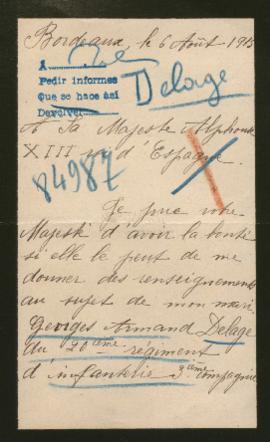 Bordeaux, le 6 Août 1915
A
Pedir informes
Que se hace así
Devolver
Delage
A Sa Majesté Alphonse
XIII roi d'Espagne.
84987
Je prie votre
Majesté d'avoir la bonté
si elle le peut de me
donner des renseignements
au sujet de mon mari
Georges Armand Delage
du 20ème régiment
d'infanterie 3ème compagnie